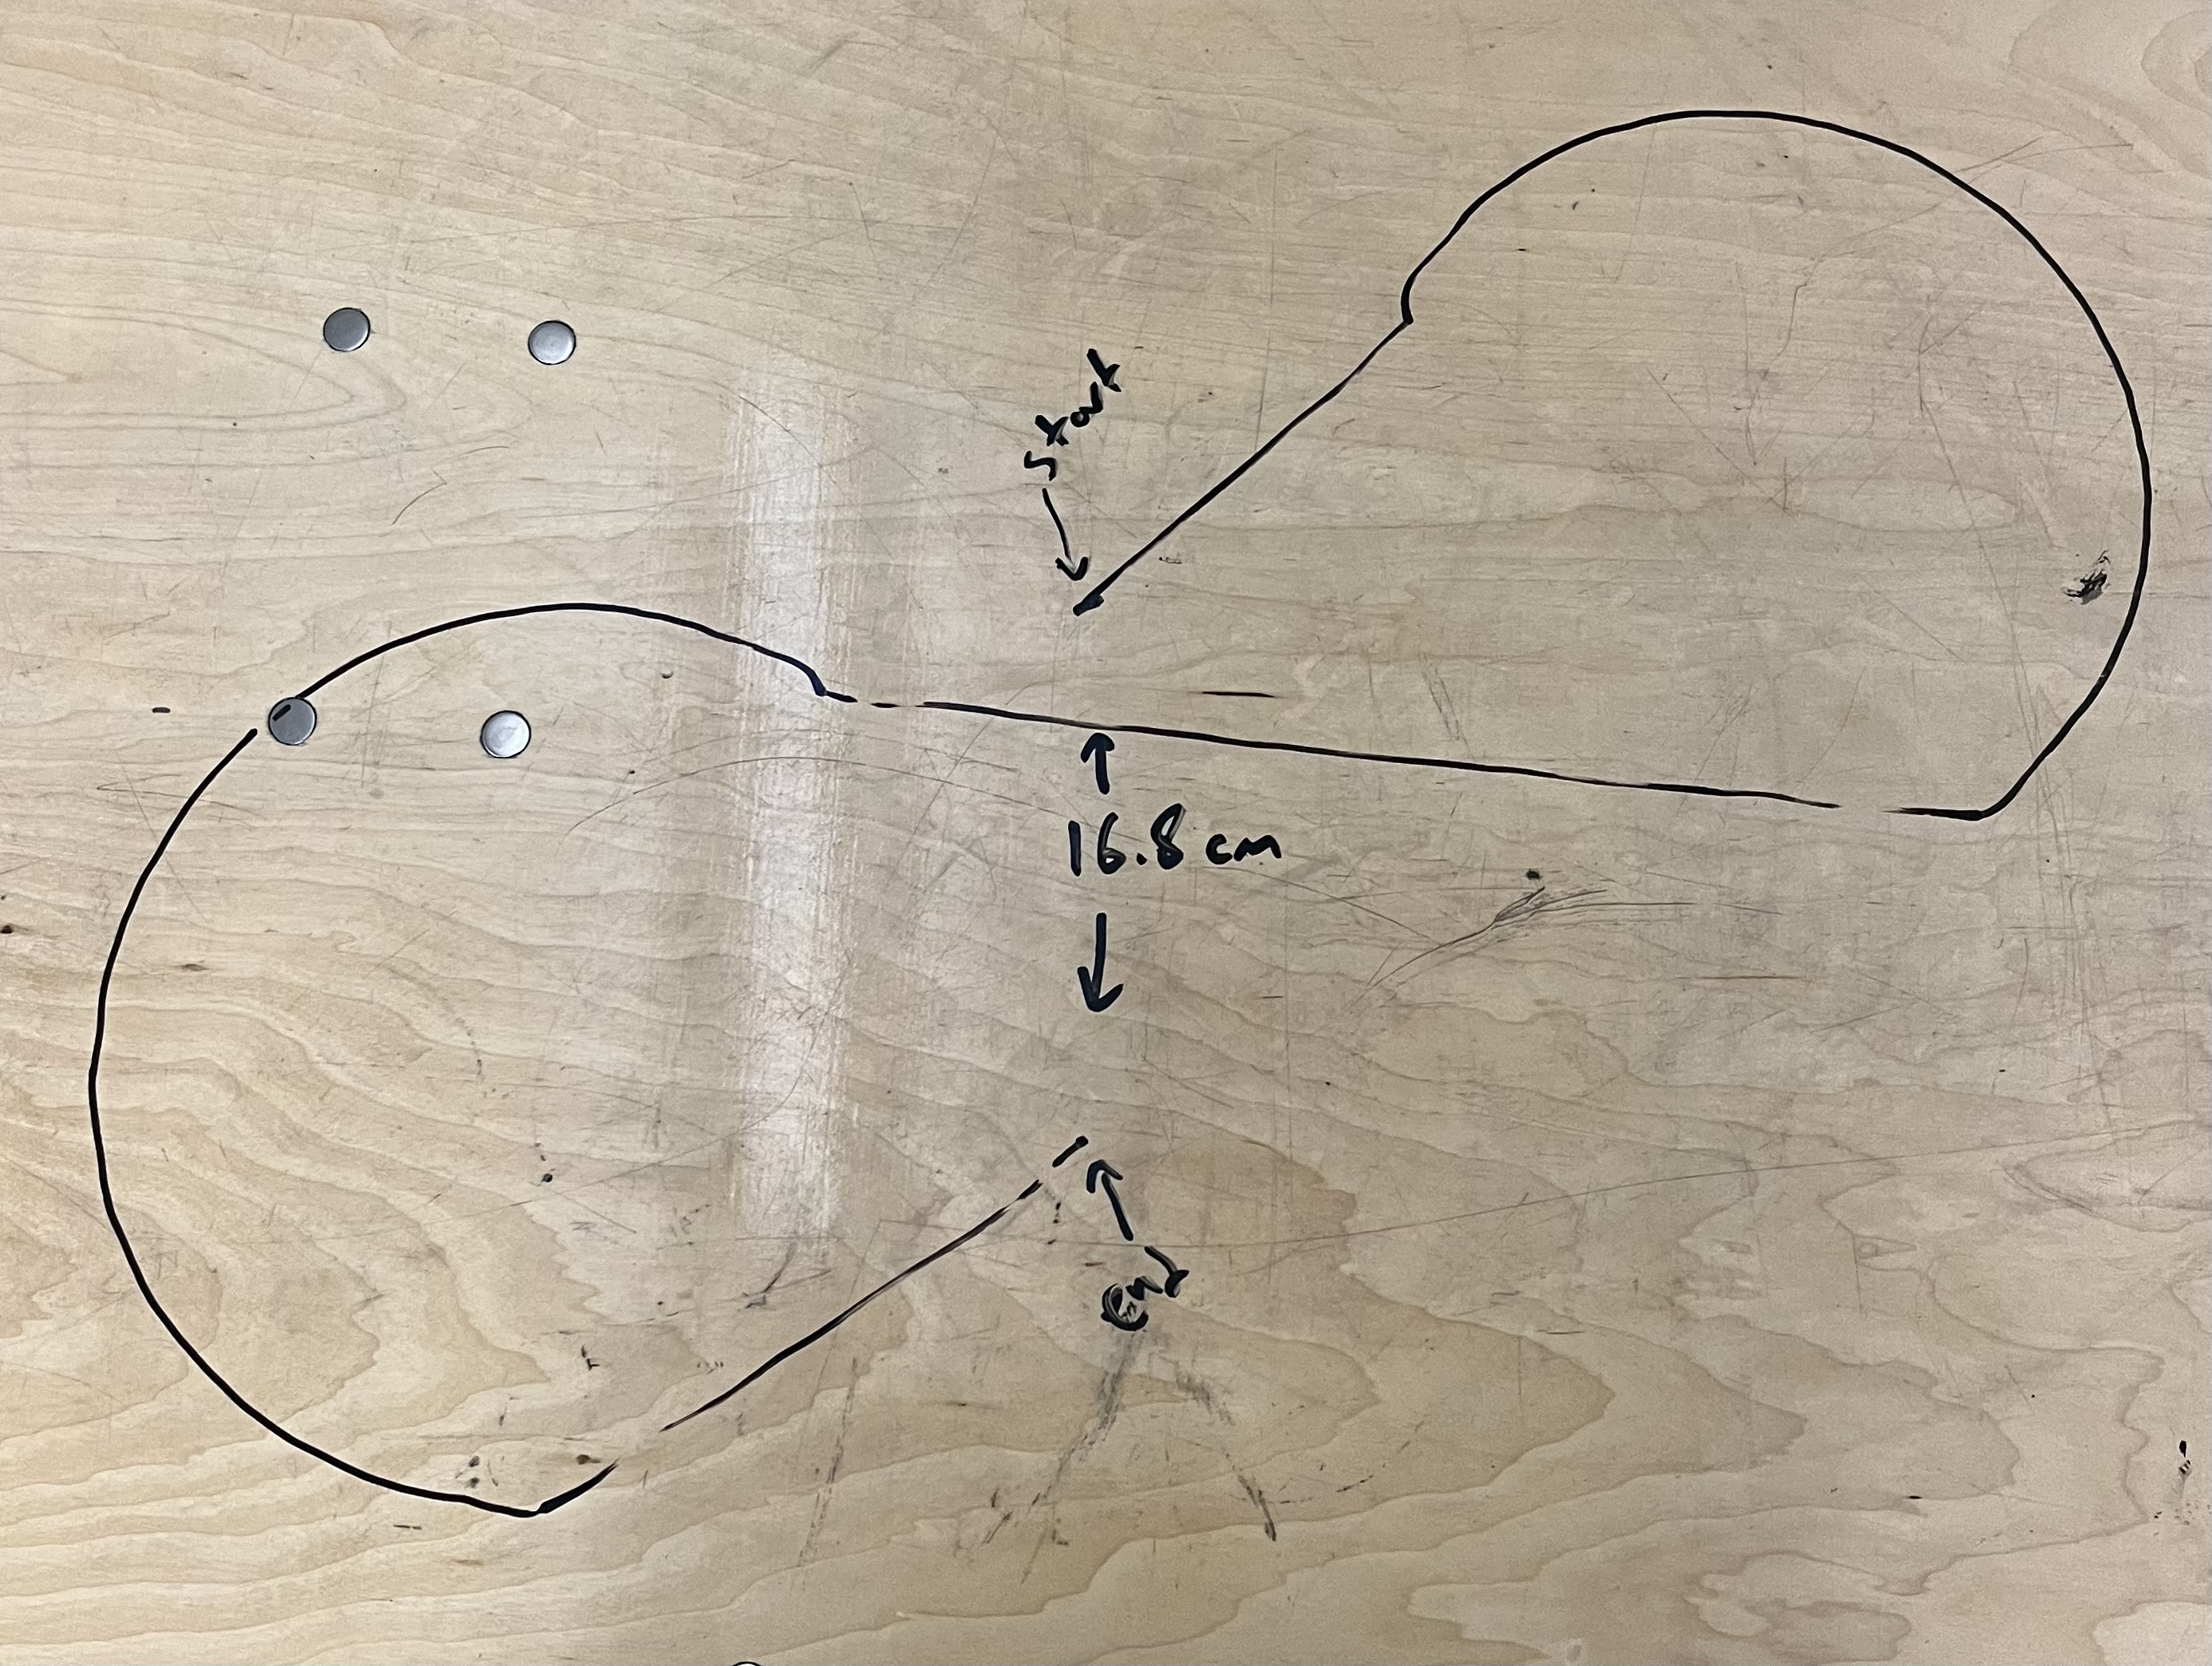 start
16.8 cm
end